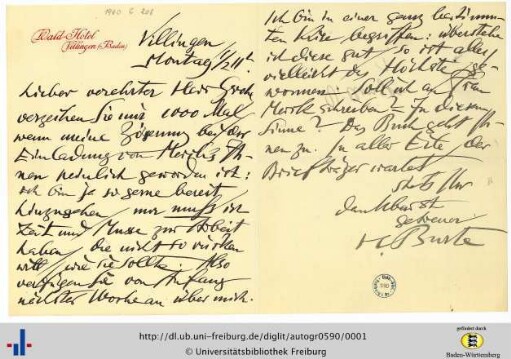 1960 G 208
Wald-Hotel
Villingen (Baden)
Villingen
Montag
Lieber verehrter Herr
verzeihen Sie mir 1000 Mal
wenn meine Zögerung bei der
Einladung von
nen peinlich geworden ist:
ich bin ja so gerne bereit
hinzugehen, nur muss ich
Zeit und Musse zur Arbeit
haben, die nicht so rücken
will, wie sie sollte. Also
verfügen Sie von Anfang
nächster Woche an über mich.
Ich bin in einer ganz bestimm-
ten Krise begriffen: überstehe
ich diese gut, so ist alles,
vielleicht das Höchste ge-
wonnen. Soll ich an Frau
schreiben? In diesem
Sinne? Das Buch geht Ih-
nen zu. In aller Eile, der
Briefträger wartet
stets Ihr
dankbarst
getreuer
Burte
http://dl.ub.uni-freiburg.de/diglit/autogr0590/0001
© Universitätsbibliothek Freiburg
gefördert durch
Baden-Württemberg